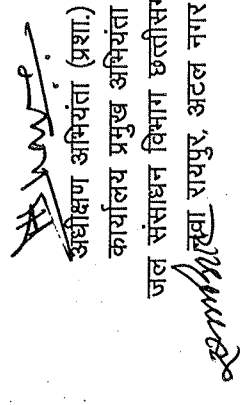 अधीक्षण अभियंता (प्रशा.)
कार्यालय प्रमुख अभियंता
जल संसाधन विभाग छत्तीसगढ़
नवा रायपुर, अटल नगर